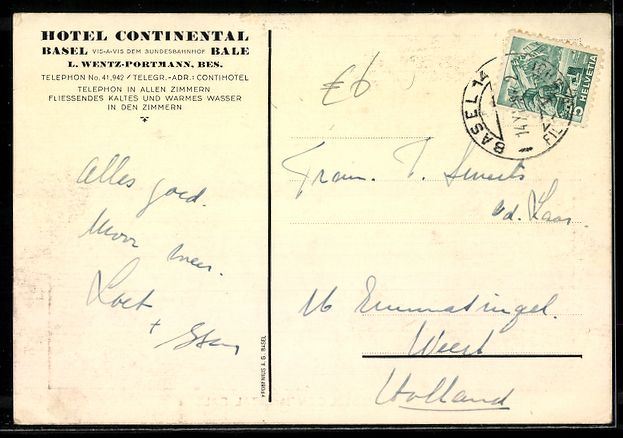 HOTEL CONTINENTAL
BASEL VIS-A-VIS DEM BUNDESBAHNHOF BALE
L. WENTZ-PORTMANN, BES.
TELEPHON No. 41.942 / TELEGR.-ADR.: CONTIHOTEL
TELEPHON IN ALLEN ZIMMERN
FLIESSENDES KALTES UND WARMES WASSER
IN DEN ZIMMERN
Alles goed.
Mooi weer.
Loet
+
€6
HELVETIA
5
BASEL 14
FROBENIUS A.G. BASEL
Fam. T. Smeets
v.d. Laar
16 Emmasingel.
Weert
Holland